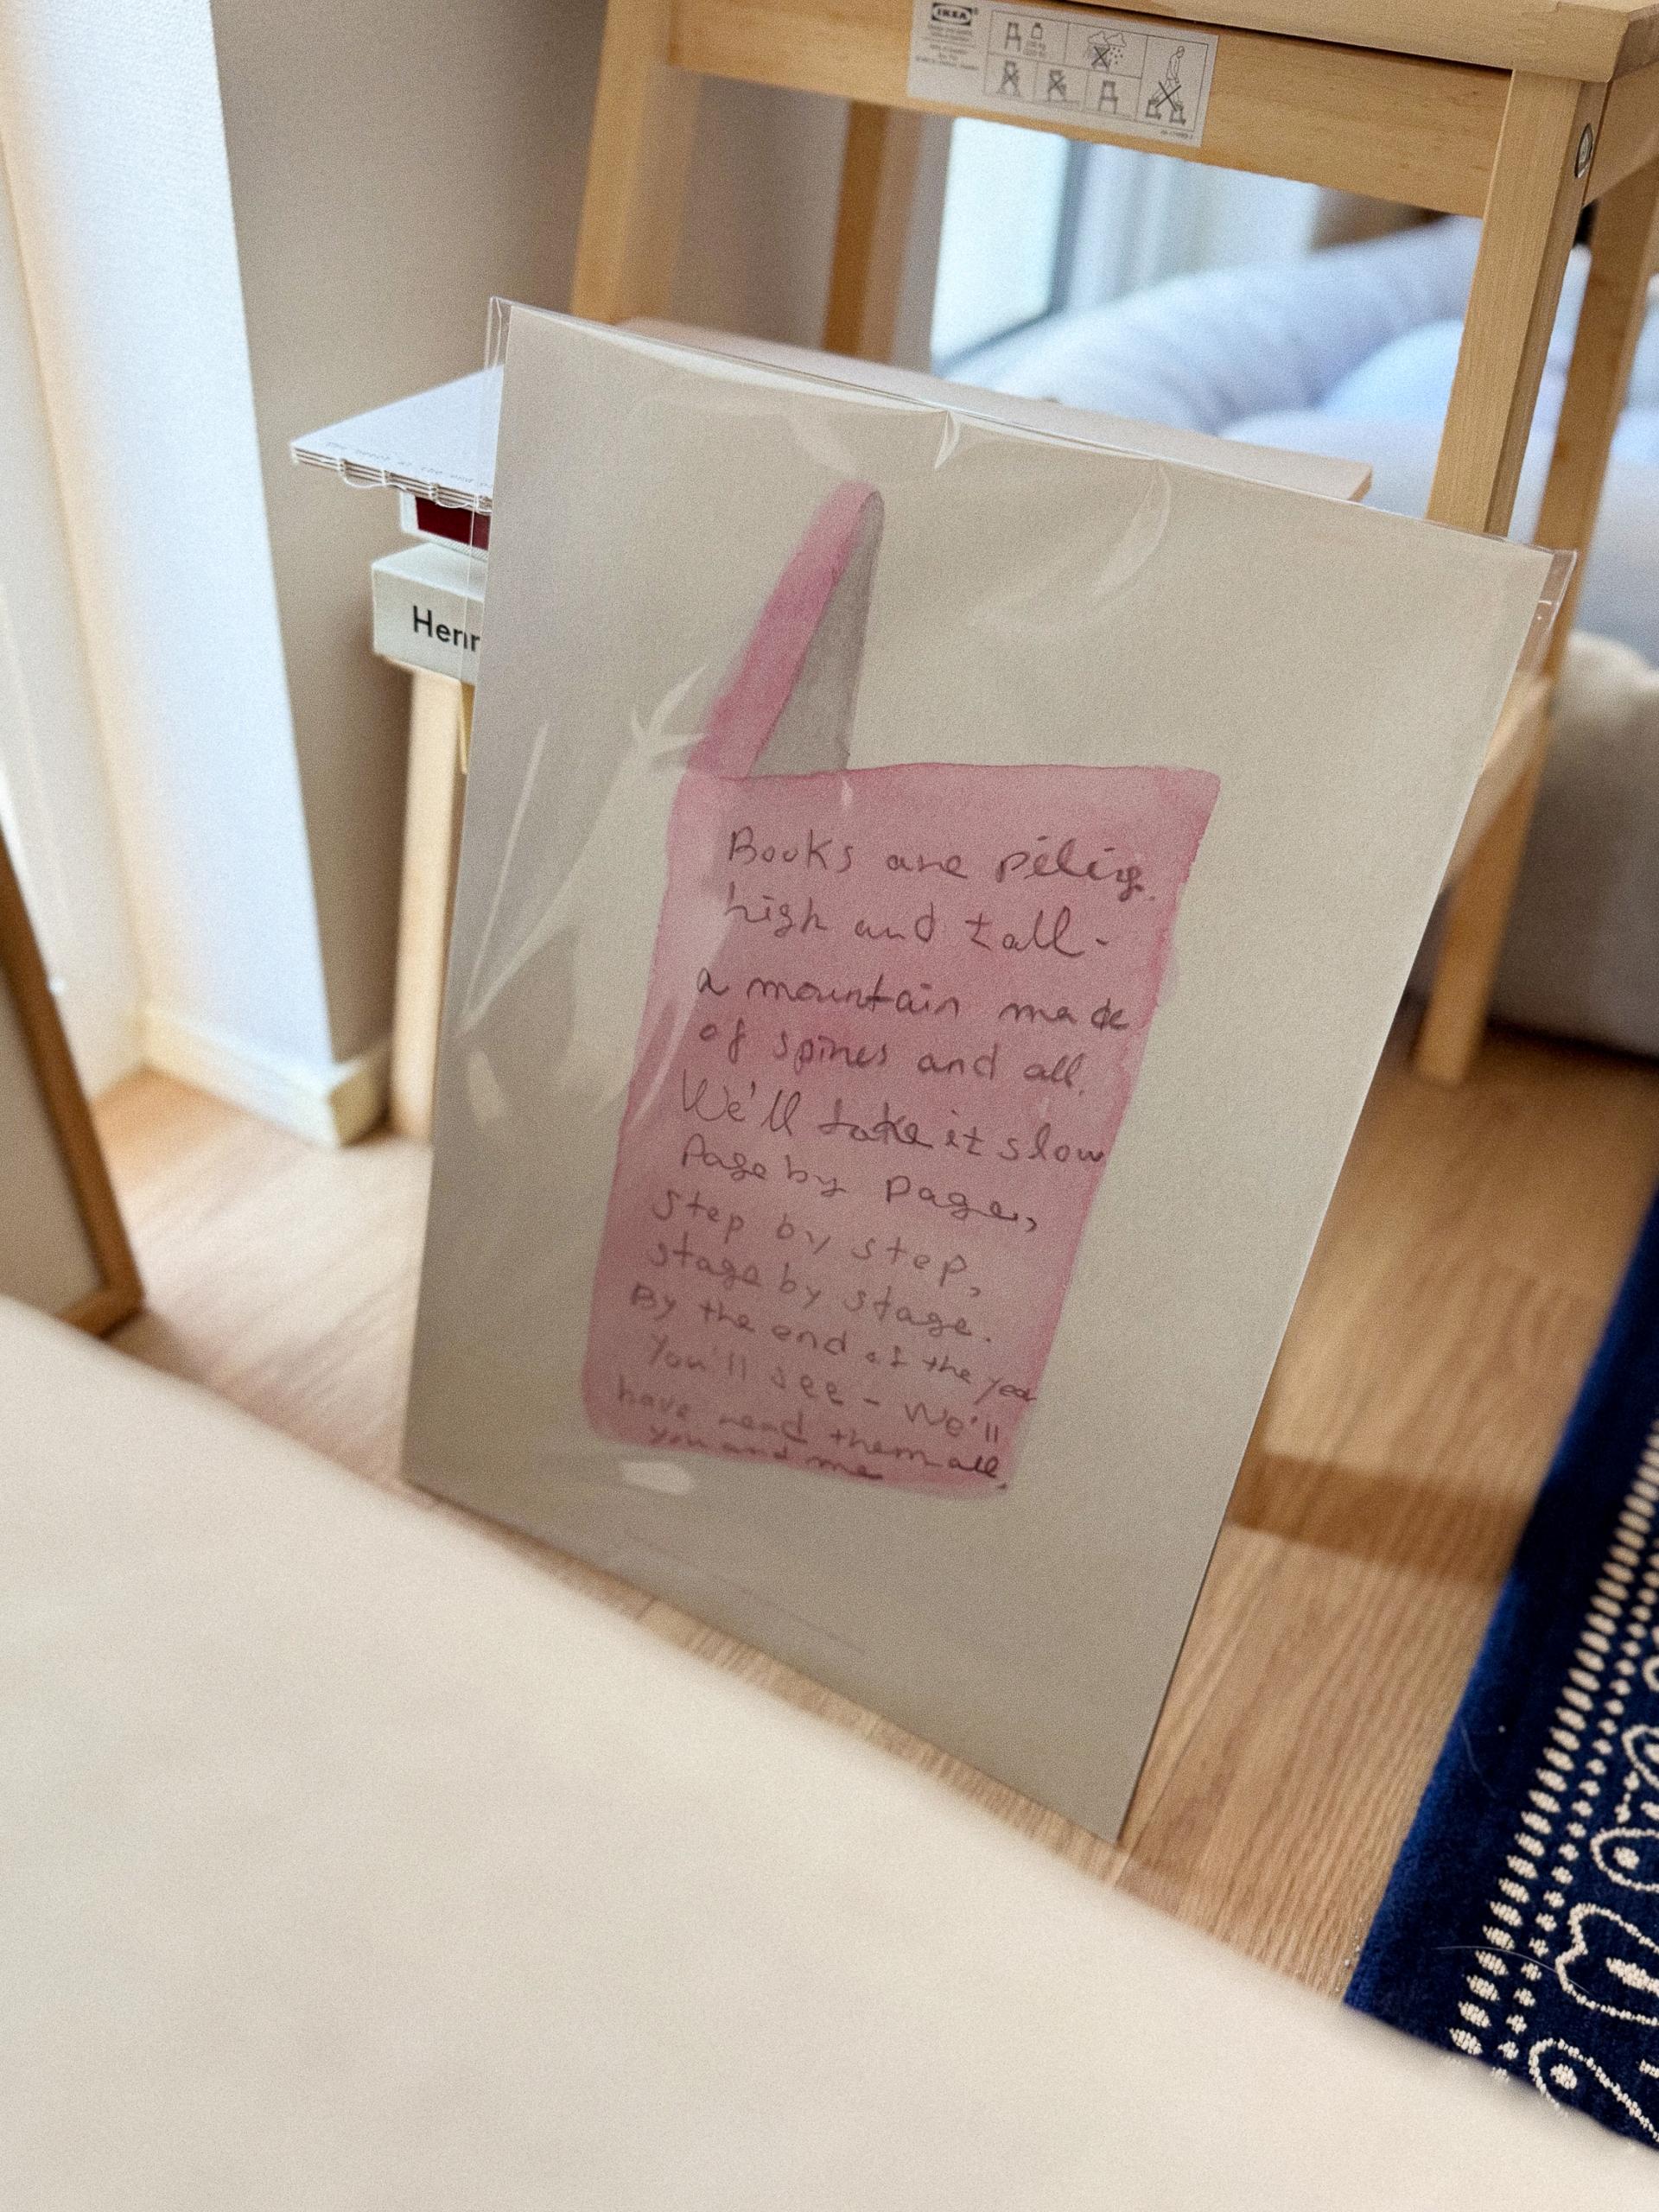 IKEA
Henr
Books are piling
high and tall-
a mountain made
of spines and all.
We'll take it slow
Page by page,
step by step,
stage by stage.
By the end of the year
You'll see - We'll
have read them all,
you and me